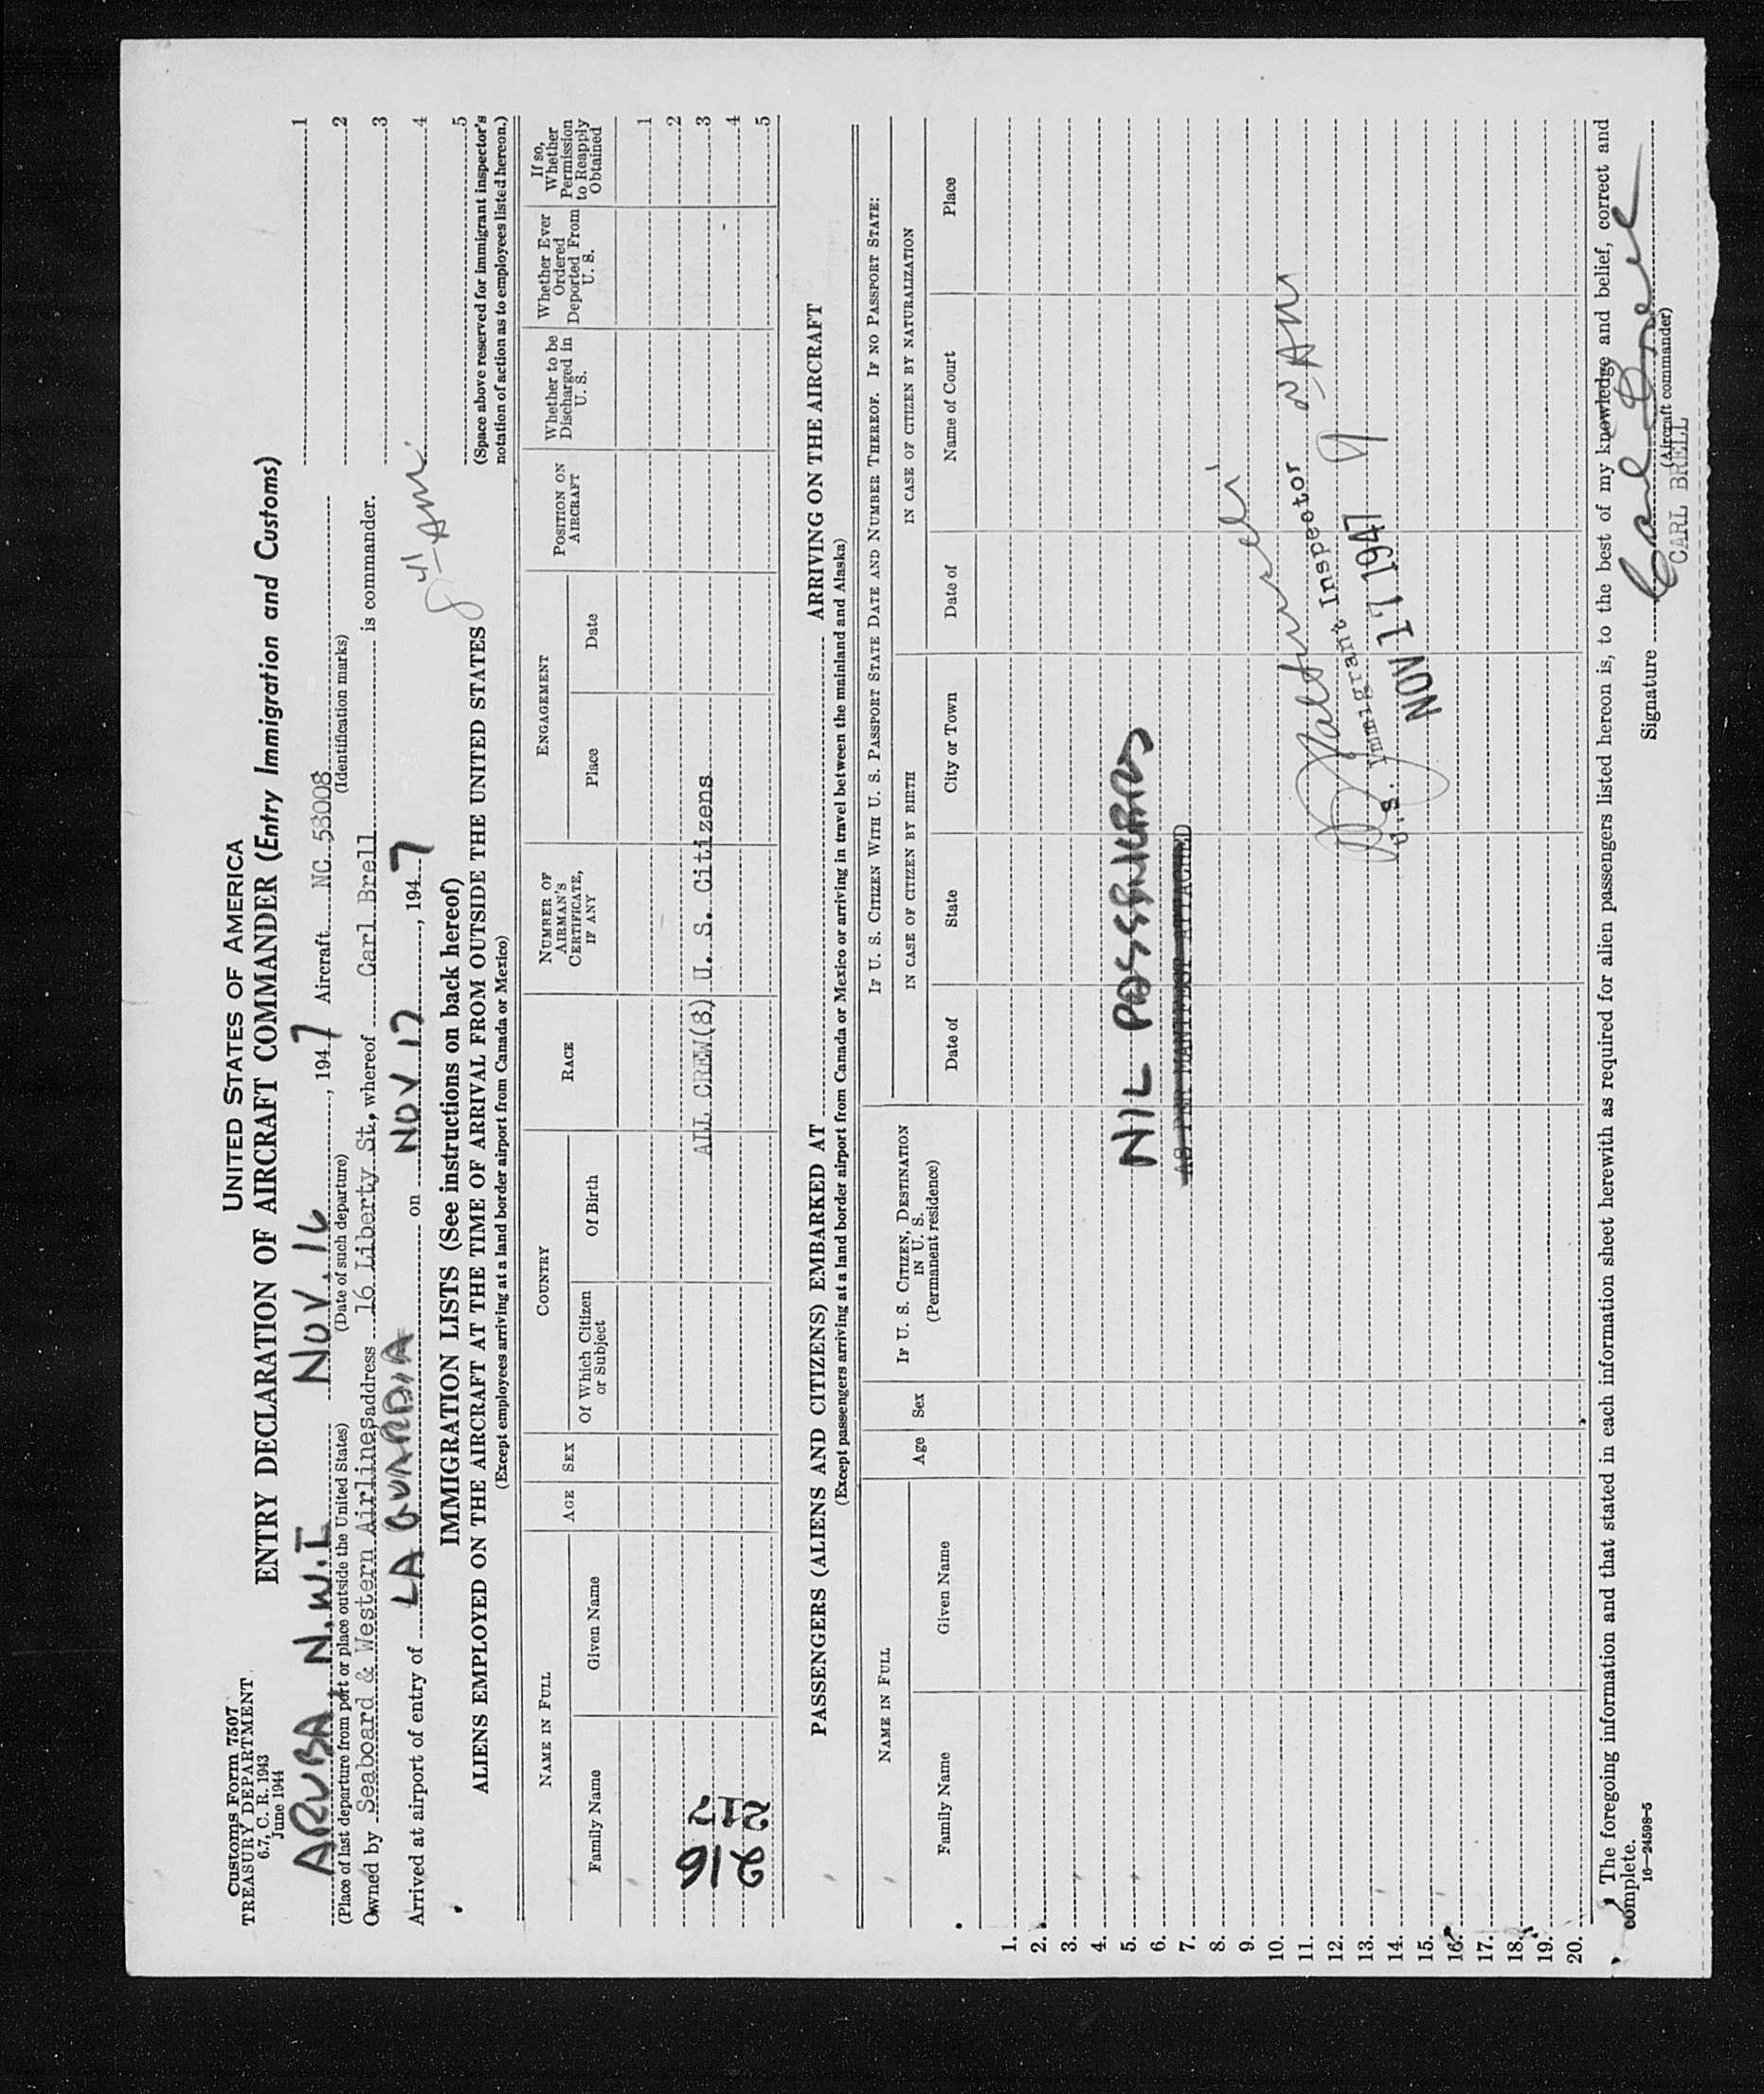 Customs Form 7507
TREASURY DEPARTMENT
6.7, C. R. 1943
June 1944
UNITED STATES OF AMERICA
ENTRY DECLARATION OF AIRCRAFT COMMANDER (Entry Immigration and Customs)
ARUBA, N.W.I NOV. 16, 1947 Aircraft NC 58008
(Place of last departure from port or place outside the United States) (Date of such departure) (Identification marks)
Owned by Seaboard & Western Airlines address 16 Liberty St., whereof Carl Brell is commander.
Arrived at airport of entry of LA GUARDIA on NOV 17, 1947
1
2
3
4
5
(Space above reserved for immigrant inspector's
notation of action as to employees listed hereon.)
IMMIGRATION LISTS (See instructions on back hereof)
ALIENS EMPLOYED ON THE AIRCRAFT AT THE TIME OF ARRIVAL FROM OUTSIDE THE UNITED STATES
(Except employees arriving at a land border airport from Canada or Mexico)
NAME IN FULL
Family Name
Given Name
AGE
SEX
COUNTRY
Of Which Citizen or Subject
Of Birth
RACE
NUMBER OF AIRMAN'S CERTIFICATE, IF ANY
ENGAGEMENT
Place
Date
POSITION ON AIRCRAFT
Whether to be Discharged in U. S.
Whether Ever Ordered Deported From U. S.
If so, Whether Permission to Reapply Obtained
1
2
216 217 ALL CREW(8) U. S. Citizens 3
4
5
PASSENGERS (ALIENS AND CITIZENS) EMBARKED AT ARRIVING ON THE AIRCRAFT
(Except passengers arriving at a land border airport from Canada or Mexico or arriving in travel between the mainland and Alaska)
NAME IN FULL
Family Name
Given Name
Age
Sex
IF U. S. CITIZEN, DESTINATION IN U. S.
(Permanent residence)
IF U. S. CITIZEN WITH U. S. PASSPORT STATE DATE AND NUMBER THEREOF. IF NO PASSPORT STATE:
IN CASE OF CITIZEN BY BIRTH
Date of
State
City or Town
IN CASE OF CITIZEN BY NATURALIZATION
Date of
Name of Court
Place
1.
2.
3.
4.
5. NIL PASSENGERS
6.
7. AS PER MANIFEST ATTACHED
8.
9.
10.
11. U.S. Immigrant Inspector
12.
13. NOV 17 1947
14.
15.
16.
17.
18.
19.
20.
The foregoing information and that stated in each information sheet herewith as required for alien passengers listed hereon is, to the best of my knowledge and belief, correct and
complete.
16—24598-5
Signature Carl Brell
(Aircraft commander)
CARL BRELL